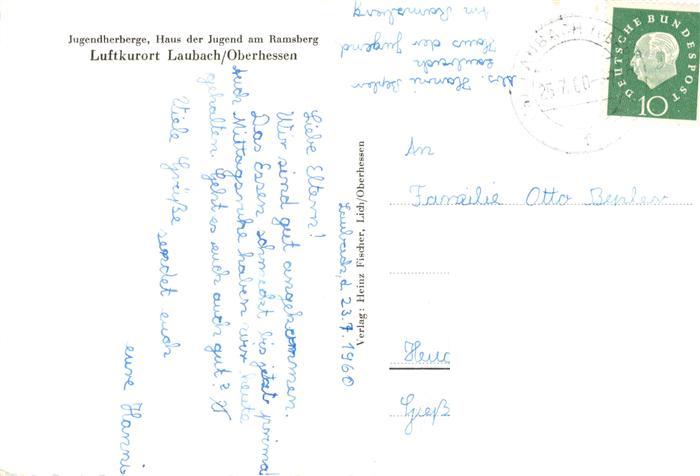 Jugendherberge, Haus der Jugend am Ramsberg
Luftkurort Laubach/Oberhessen
Laubach, d. 23.7.1960
Liebe Eltern!
Wir sind gut angekommen.
Das Essen schmeckt bis jetzt prima
Auch Mittagsruhe haben wir heute
gehalten. Geht es euch auch gut?
Viele Grüße sendet euch
eure Hanni
Verlag: Heinz Fischer, Lich/Oberhessen
Abs. Hanni
Laubach
Haus der Jugend
am Ramsberg
LAUBACH
25.7.60
DEUTSCHE BUNDESPOST
10
An
Familie Otto
Heuc
Gieß